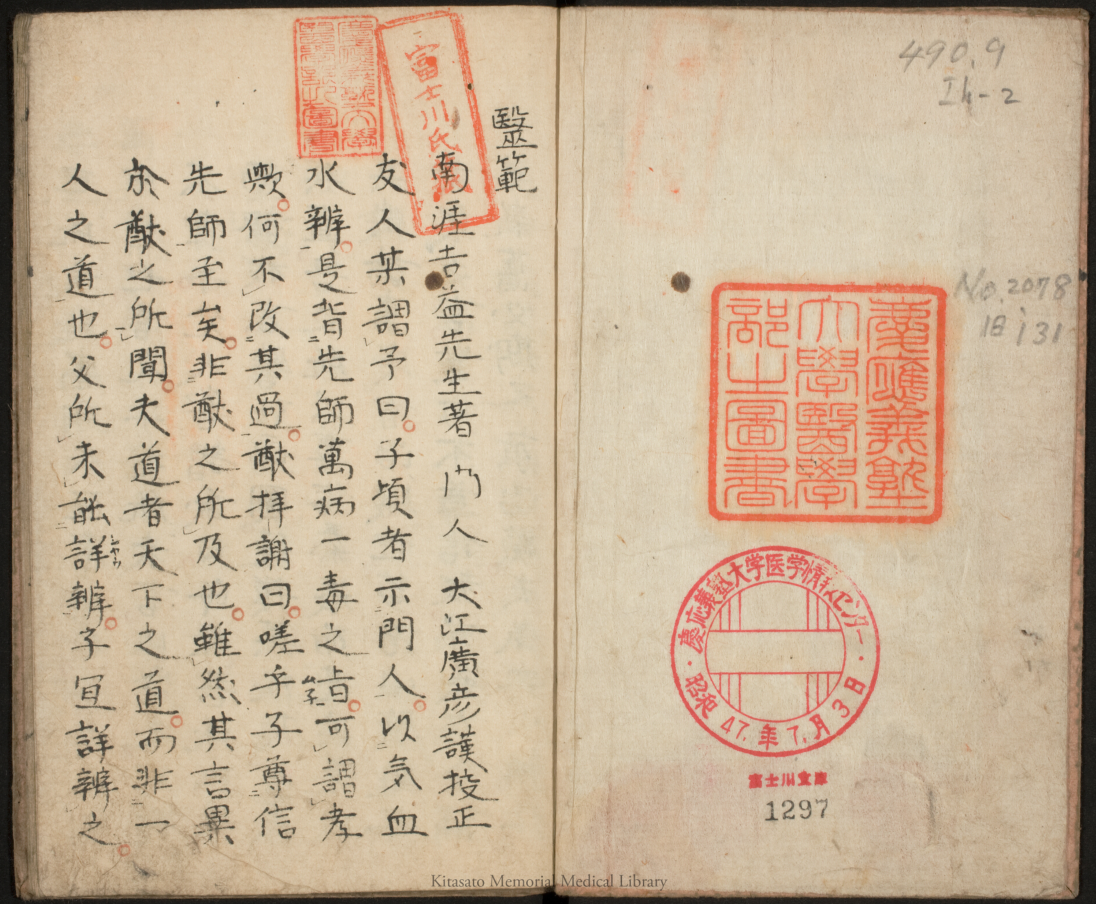 490.9
Ih-2
No.2078
旧i131
慶應義塾
大學醫學
部之圖書
慶応義塾大学医学情報センター
昭和47.年7.月3日
富士川文庫
1297
醫範
富士川氏藏
南涯吉益先生著 門人 大江廣彦謹挍正
友人某謂予曰子頃者示門人以気血
水辨是背先師萬病一毒之旨可謂孝
歟何不改其過猷拝謝曰嗟乎子尊信
先師至矣非猷之所及也雖然其言異
於猷之所聞夫道者天下之道而非一
人之道也父所未能詳辨子宜詳辨之
Kitasato Memorial Medical Library